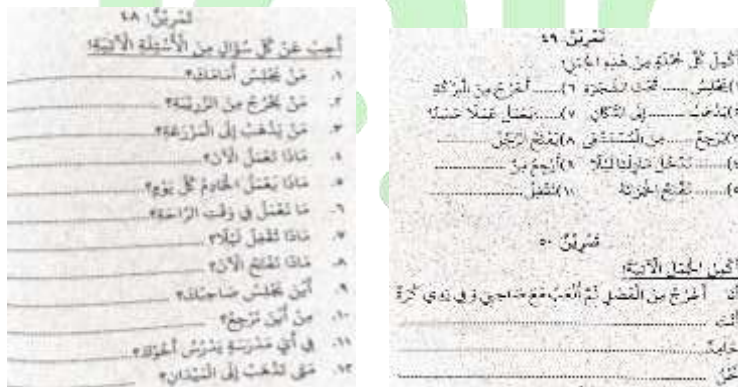 تَمْرِيْنٌ: ٤٨
أَجِبْ عَنْ كُلِّ سُؤَالٍ مِنَ الْأَسْئِلَةِ الْآتِيَةِ:
١. مَنْ يَجْلِسُ أَمَامَكَ؟
٢. مَنْ يَخْرُجُ مِنَ الزَّرِيْبَةِ؟
٣. مَنْ يَذْهَبُ إِلَى الْمَزْرَعَةِ؟
٤. مَاذَا تَعْمَلُ الْآنَ؟
٥. مَاذَا يَعْمَلُ الْخَادِمُ كُلَّ يَوْمٍ؟
٦. مَا تَعْمَلُ فِي وَقْتِ الرَّاحَةِ؟
٧. مَاذَا تَفْعَلُ لَيْلًا؟
٨. مَاذَا تَفْتَحُ الْآنَ؟
٩. أَيْنَ يَجْلِسُ صَاحِبُكَ؟
١٠. مِنْ أَيْنَ تَرْجِعُ؟
١١. فِي أَيِّ مَدْرَسَةٍ يَدْرُسُ أَخُوْكَ؟
١٢. مَتَى تَذْهَبُ إِلَى الْمَيْدَانِ؟
تَمْرِيْنٌ ٤٩
أَكْمِلْ كُلَّ جُمْلَةٍ مِنْ هَذِهِ الْجُمَلِ:
١) يَجْلِسُ ...... تَحْتَ الشَّجَرَةِ ٦) ...... أَخْرُجُ مِنَ
٢) يَذْهَبُ ...... إِلَى الدُّكَّانِ ٧) ...... يَعْمَلُ عَمَلًا حَسَنًا
٣) يَرْجِعُ ...... مِنَ الْمُسْتَشْفَى ٨) يَفْتَحُ الرَّجُلُ ......
٤) ...... لَيْلًا ٩) أَرْجِعُ مِنْ ......
٥) ...... تَفْتَحُ ١٠) تَفْعَلُ ......
تَمْرِيْنٌ ٥٠
أَكْمِلِ الْجُمَلَ الْآتِيَةَ:
أَنَا أَخْرُجُ مِنَ الْفَصْلِ ثُمَّ أَلْعَبُ مَعَ صَاحِبِيْ وَفِي يَدِي كُرَةٌ
أَنْتَ ......
حَامِدٌ ......
نَحْنُ ......